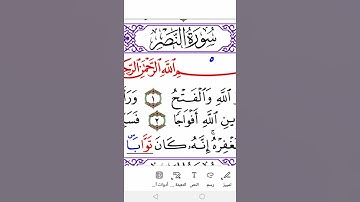 سُورَةُ النَّصْرِ
ـمِ اللَّهِ الرَّحْمَٰنِ الرَّحِـ
اللَّهِ وَالْفَتْحُ ١ وَرَأَ
ينِ اللَّهِ أَفْوَاجًا ٢ فَسَـ
ـغْفِرْهُ إِنَّهُ كَانَ تَوَّابًا
تمييز رسم النص التعبئة أدوات أ...